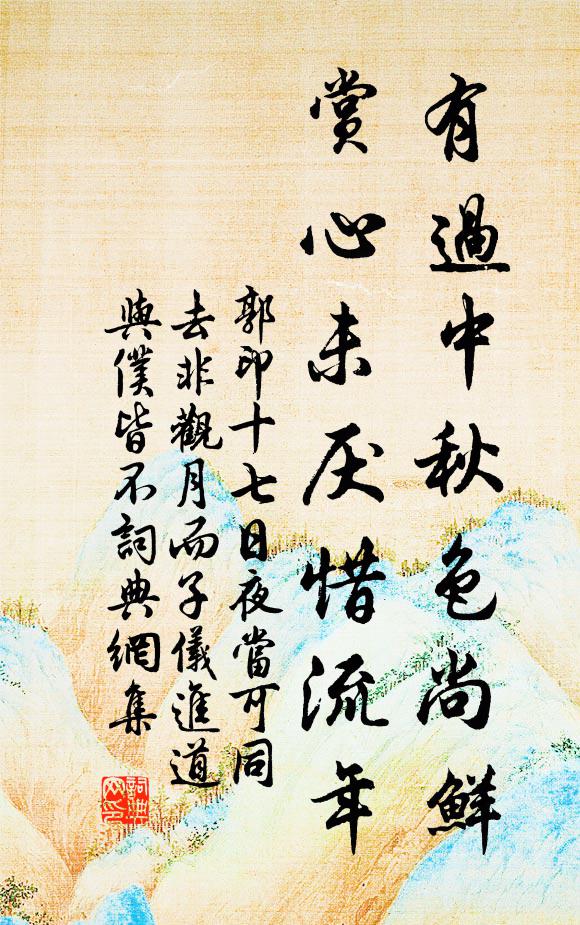 有過中秋色尚鮮
賞心未厌惜流年
郭印十七日夜當可同
去非觀月而子儀進道
與僕皆不詞典網集
詞典網印